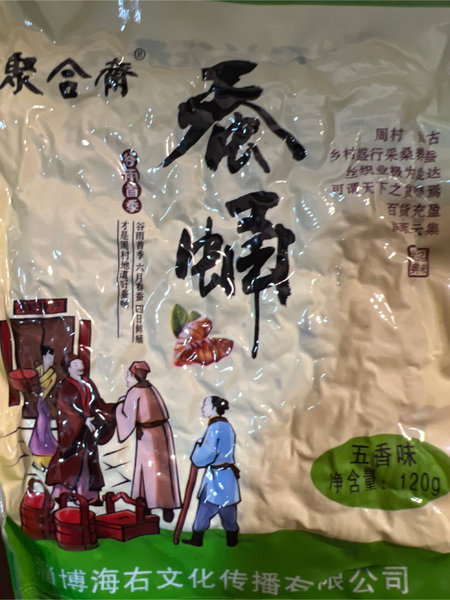 聚合斋®
蚕蛹
谷雨首季
谷雨首季 六月春蚕 四日鲜蛹
才是周村地道好蚕蛹
周村 古
乡村盛行采桑养蚕
丝织业极为发达
可谓天下之
百货充盈
集
五香味
净含量：120g
淄博海右文化传播有限公司